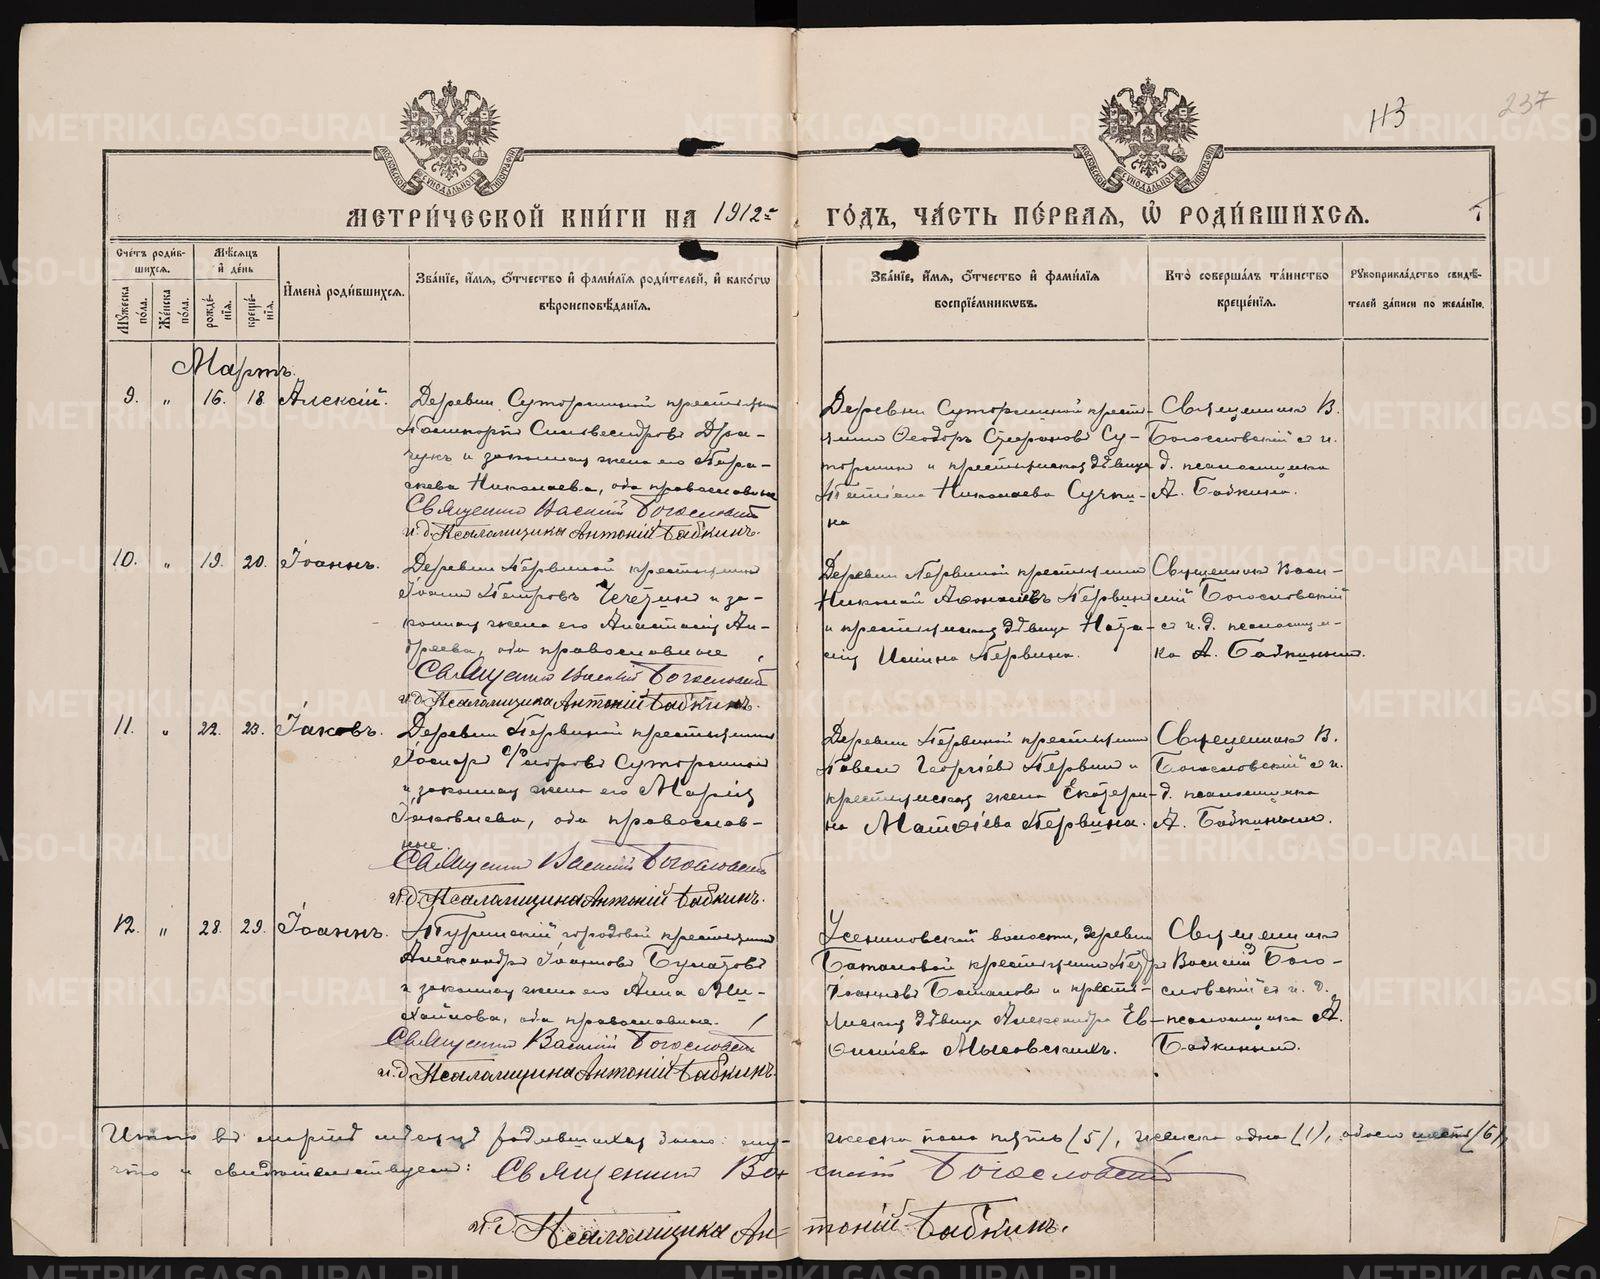 113
237
МОСКОВСКОЙ СУНОДАЛЬНОЙ ТИПОГРАФІИ
МОСКОВСКОЙ СУНОДАЛЬНОЙ ТИПОГРАФІИ
МЕТРИ́ЧЕСКОЙ КНИ́ГИ НА 1912 ГО́ДЪ, ЧА́СТЬ ПЕ́РВАЯ, Ѡ҆ РОДИ́ВШИХСЯ.
Сче́тъ роди́в-
шихся.
Мѣ́сяцъ
и҆ де́нь
Мꙋ́жеска по́ла.
Же́нска по́ла.
рожде́-
нїя.
креще́-
нїя.
И҆мена̀ роди́вшихся.
Зва́нїе, и҆́мя, ѻ҆́тчество и҆ фами́лїя роди́телей, и҆ како́гѡ
вѣроисповѣ́данїя.
Зва́нїе, и҆́мя, ѻ҆́тчество и҆ фами́лїя
воспрїе́мникѡвъ.
Кто̀ соверша́лъ та́инство
креще́нїя.
Рꙋкоприкла́дство свидѣ́-
телей за́писи по жела́нїю.
Мартъ.
9. " 16. 18 Алексій.
Деревни Суториной крестьянинъ
Сильвестровъ Дра-
чукъ и законная жена его Пара-
скева Николаева, оба православные
Священникъ Василій Богословскій
и. д. Псаломщика Антоній Бабкинъ.
Деревни Суториной кресть-
янинъ Ѳеодоръ Стефановъ Су-
торминъ и крестьянская дѣвица
Николаева Сучки-
на
Священникъ В.
Богословскій съ и.
д. псаломщика
А. Бабкинъ.
10. " 19. 20. Іоаннъ.
Деревни Первиной крестьянинъ
Іоаннъ Петровъ Чечулинъ и за-
конная жена его Анастасія Ан-
дреева, оба православные
Священникъ Василій Богословскій
и. д. Псаломщика Антоній Бабкинъ.
Деревни Первиной крестьянинъ
Николай Аѳонасіевъ Первинъ
и крестьянская дѣвица Ната-
лія Первина.
Священникъ Васи-
лій Богословскій
съ и. д. псаломщи-
ка А. Бабкинымъ.
11. " 22. 23. Іаковъ.
Деревни Первиной крестьянинъ
Іосифъ Суторминъ
и законная жена его Марія
Іаковлева, оба православ-
ные.
Священникъ Василій Богословскій
и. д. Псаломщика Антоній Бабкинъ.
Деревни Первиной крестьянинъ
Павелъ Георгіевъ Первинъ и
крестьянская жена Екатери-
на Матѳіева Первина.
Священникъ В.
Богословскій съ и.
д. псаломщика
А. Бабкинымъ.
12. " 28. 29. Іоаннъ.
Туринскій городовой крестьянинъ
Александръ Іоанновъ Булатовъ
и законная жена его Анна Ми-
хайлова, оба православные.
Священникъ Василій Богословскій
и. д. Псаломщика Антоній Бабкинъ.
Усениновской волости, деревни
Баталовой крестьянинъ Петръ
Іоанновъ Баталовъ и кресть-
янская дѣвица Александра Ев-
Мысовскихъ.
Священникъ
Василій Бого-
словскій съ и. д.
псаломщика А.
Бабкинымъ.
Итого въ мартѣ мѣсяцѣ родившихся было: му-жеска пола пять (5), женска одна (1), обоего шесть (6),
что и свидѣтельствуемъ: Священникъ Ва-силій Богословскій
и. д. Псаломщика Ан-тоній Бабкинъ.
METRIKI.GASO-URAL.RU